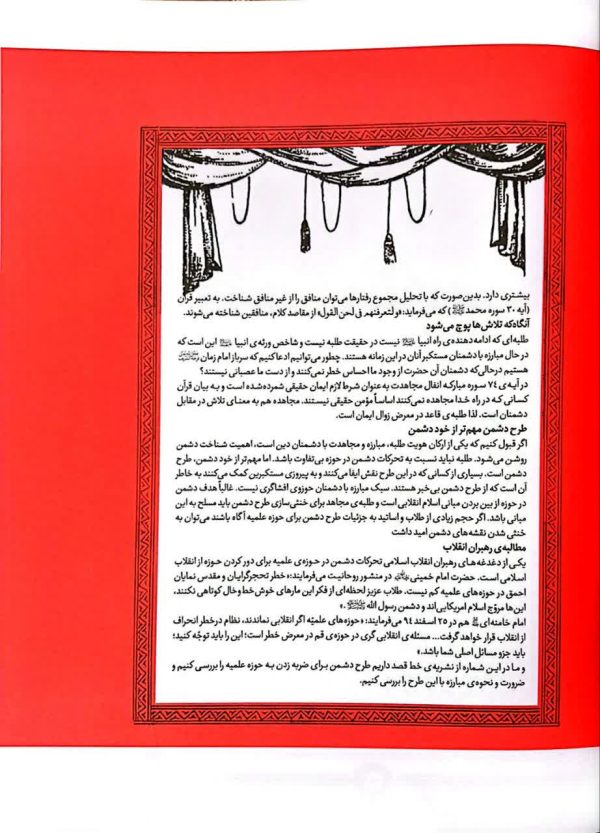 بیشتری دارد. بدین‌صورت که با تحلیل مجموع رفتارها می‌توان منافق را از غیر منافق شناخت. به تعبیر قرآن
(آیه ۳۰ سوره محمد ﷺ) که می‌فرماید: «و لتعرفنهم فی لحن القول» از مقاصد کلام، منافقین شناخته می‌شوند.
آنگاه که تلاش‌ها پوچ می‌شود
طلبه‌ای که ادامه‌دهنده‌ی راه انبیا نیست در حقیقت طلبه نیست و شاخص ورثه‌ی انبیا این است که
در حال مبارزه با دشمنان مستکبر آنان در این زمانه هستند. چطور می‌توانیم ادعا کنیم که سرباز امام زمان
هستیم درحالی‌که دشمنان آن حضرت از وجود ما احساس خطر نمی‌کنند و از دست ما عصبانی نیستند؟
در آیه‌ی ۷۴ سوره مبارکه انفال مجاهدت به‌عنوان شرط لازم ایمان حقیقی شمرده‌شده است و به بیان قرآن
کسانی که در راه خدا مجاهده نمی‌کنند اساساً مؤمن حقیقی نیستند. مجاهده هم به معنای تلاش در مقابل
دشمنان است. لذا طلبه‌ی قاعد در معرض زوال ایمان است.
طرح دشمن مهم‌تر از خود دشمن
اگر قبول کنیم که یکی از ارکان هویت طلبه، مبارزه و مجاهدت با دشمنان دین است، اهمیت شناخت دشمن
روشن می‌شود. طلبه نباید نسبت به تحرکات دشمن در حوزه بی‌تفاوت باشد. اما مهم‌تر از خود دشمن، طرح
دشمن است. بسیاری از کسانی که در این طرح نقش ایفا می‌کنند و به پیروزی مستکبرین کمک می‌کنند به خاطر
آن است که از طرح دشمن بی‌خبر هستند. سبک مبارزه با دشمنان حوزوی افشاگری نیست. غالباً هدف دشمن
در حوزه از بین بردن مبانی اسلام انقلابی است و طلبه‌ی مجاهد برای خنثی‌سازی طرح دشمن باید مسلح به این
مبانی باشد. اگر حجم زیادی از طلاب و اساتید به جزئیات طرح دشمن برای حوزه علمیه آگاه باشند می‌توان به
خنثی شدن نقشه‌های دشمن امید داشت
مطالبه‌ی رهبران انقلاب
یکی از دغدغه‌های رهبران انقلاب اسلامی تحرکات دشمن در حوزه‌ی علمیه برای دور کردن حوزه از انقلاب
اسلامی است. حضرت امام خمینی در منشور روحانیت می‌فرمایند: «خطر تحجرگرایان و مقدس نمایان
احمق در حوزه‌های علمیه کم نیست. طلاب عزیز لحظه‌ای از فکر این مارهای خوش‌خط‌وخال کوتاهی نکنند،
این‌ها مروّج اسلام امریکایی‌اند و دشمن رسول الله ﷺ.»
امام خامنه‌ای هم در ۲۵ اسفند ۹۴ می‌فرمایند: «حوزه‌های علمیّه اگر انقلابی نماندند، نظام در خطر انحراف
از انقلاب قرار خواهد گرفت... مسئله‌ی انقلابی گری در حوزه‌ی قم در معرض خطر است؛ این را باید توجّه کنید؛
باید جزو مسائل اصلی شما باشد.»
و ما در این شماره از نشریه‌ی خط قصد داریم طرح دشمن برای ضربه زدن به حوزه علمیه را بررسی کنیم و
ضرورت و نحوه‌ی مبارزه با این طرح را بررسی کنیم.